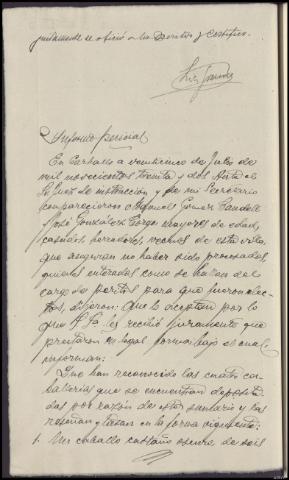 juntamente se ofició a los peritos y certifico.
Informe pericial
En Carballo a veinticinco de Julio de
mil novecientos treinta y dos. Ante el
Sr Juez de instrucción y de mi Secretario
comparecieron Manuel Gomez
y José González mayores de edad,
casados herradores vecinos de esta villa,
que aseguran no haber sido procesados,
quienes enterados como se hallan del
cargo de peritos para que fueron elec-
tos, dijeron: Que lo aceptan por lo
que S.Sª les recibió juramento que
prestaron en legal forma bajo el cual
informan:
Que han reconocido las cuatro ca-
ballerias que se encuentran deposita-
das por razón de este sumario y las
reseñan y tasan en la forma siguiente:
1. Un caballo castaño oscuro de seis